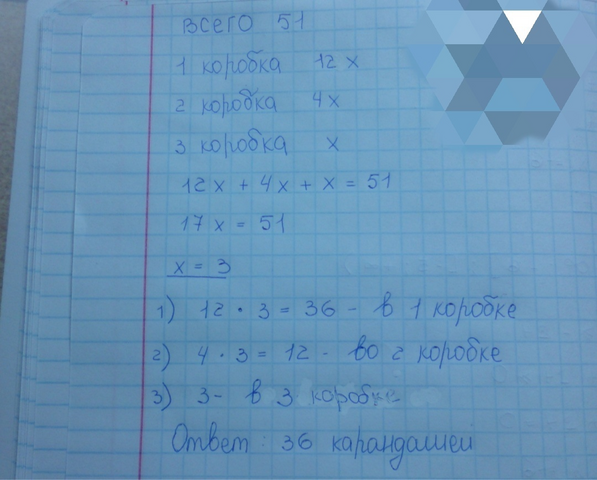 всего 51
1 коробка 12x
2 коробка 4x
3 коробка x
12x + 4x + x = 51
17x = 51
x = 3
1) 12 · 3 = 36 - в 1 коробке
2) 4 · 3 = 12 - во 2 коробке
3) 3- в 3 коробке
Ответ: 36 карандашей